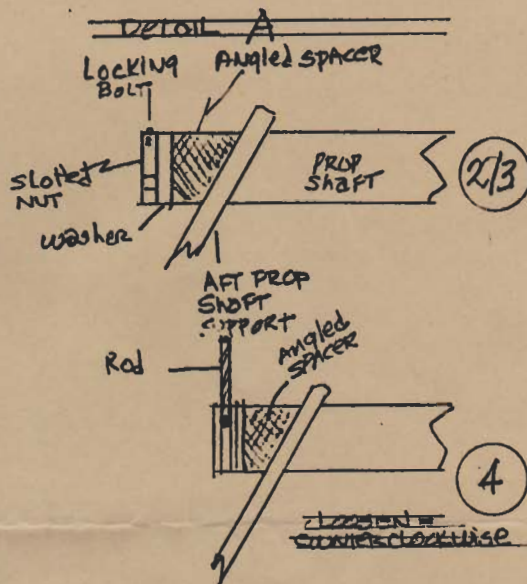 DETAIL A
LOCKING
BOLT
Angled SPACER
Slotted
NUT
PROP
Shaft
2/3
washer
AFT PROP
SHAFT
SUPPORT
Rod
Angled
SPACER
4
LOOSEN =
COUNTERCLOCKWISE